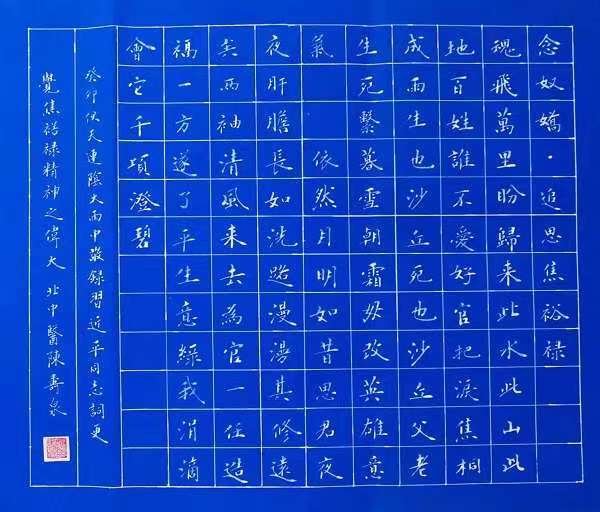 念奴嬌·追思焦裕祿
魂飛萬里盼歸來此水此山此
地百姓誰不愛好官把淚焦桐
成雨生也沙丘死也沙丘父老
生死繫暮雪朝霜毋改英雄意
氣 依然月明如昔思君夜
夜肝膽長如洗路漫漫其修遠
矣兩袖清風來去為官一任造
福一方遂了平生意綠我涓滴
會它千頃澄碧
癸卯伏天連陰大雨中敬錄習近平同志詞更
覺焦裕祿精神之偉大 北中醫陳壽泉